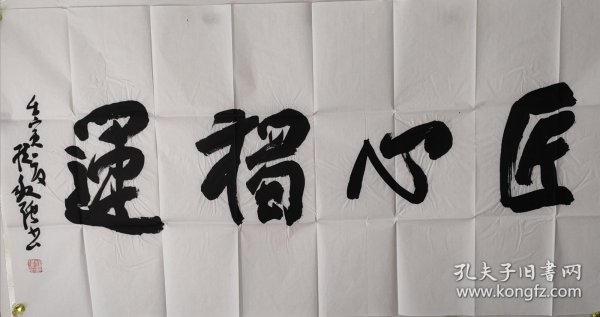 匠心獨運
孔夫子旧書网
www.kongfz.com